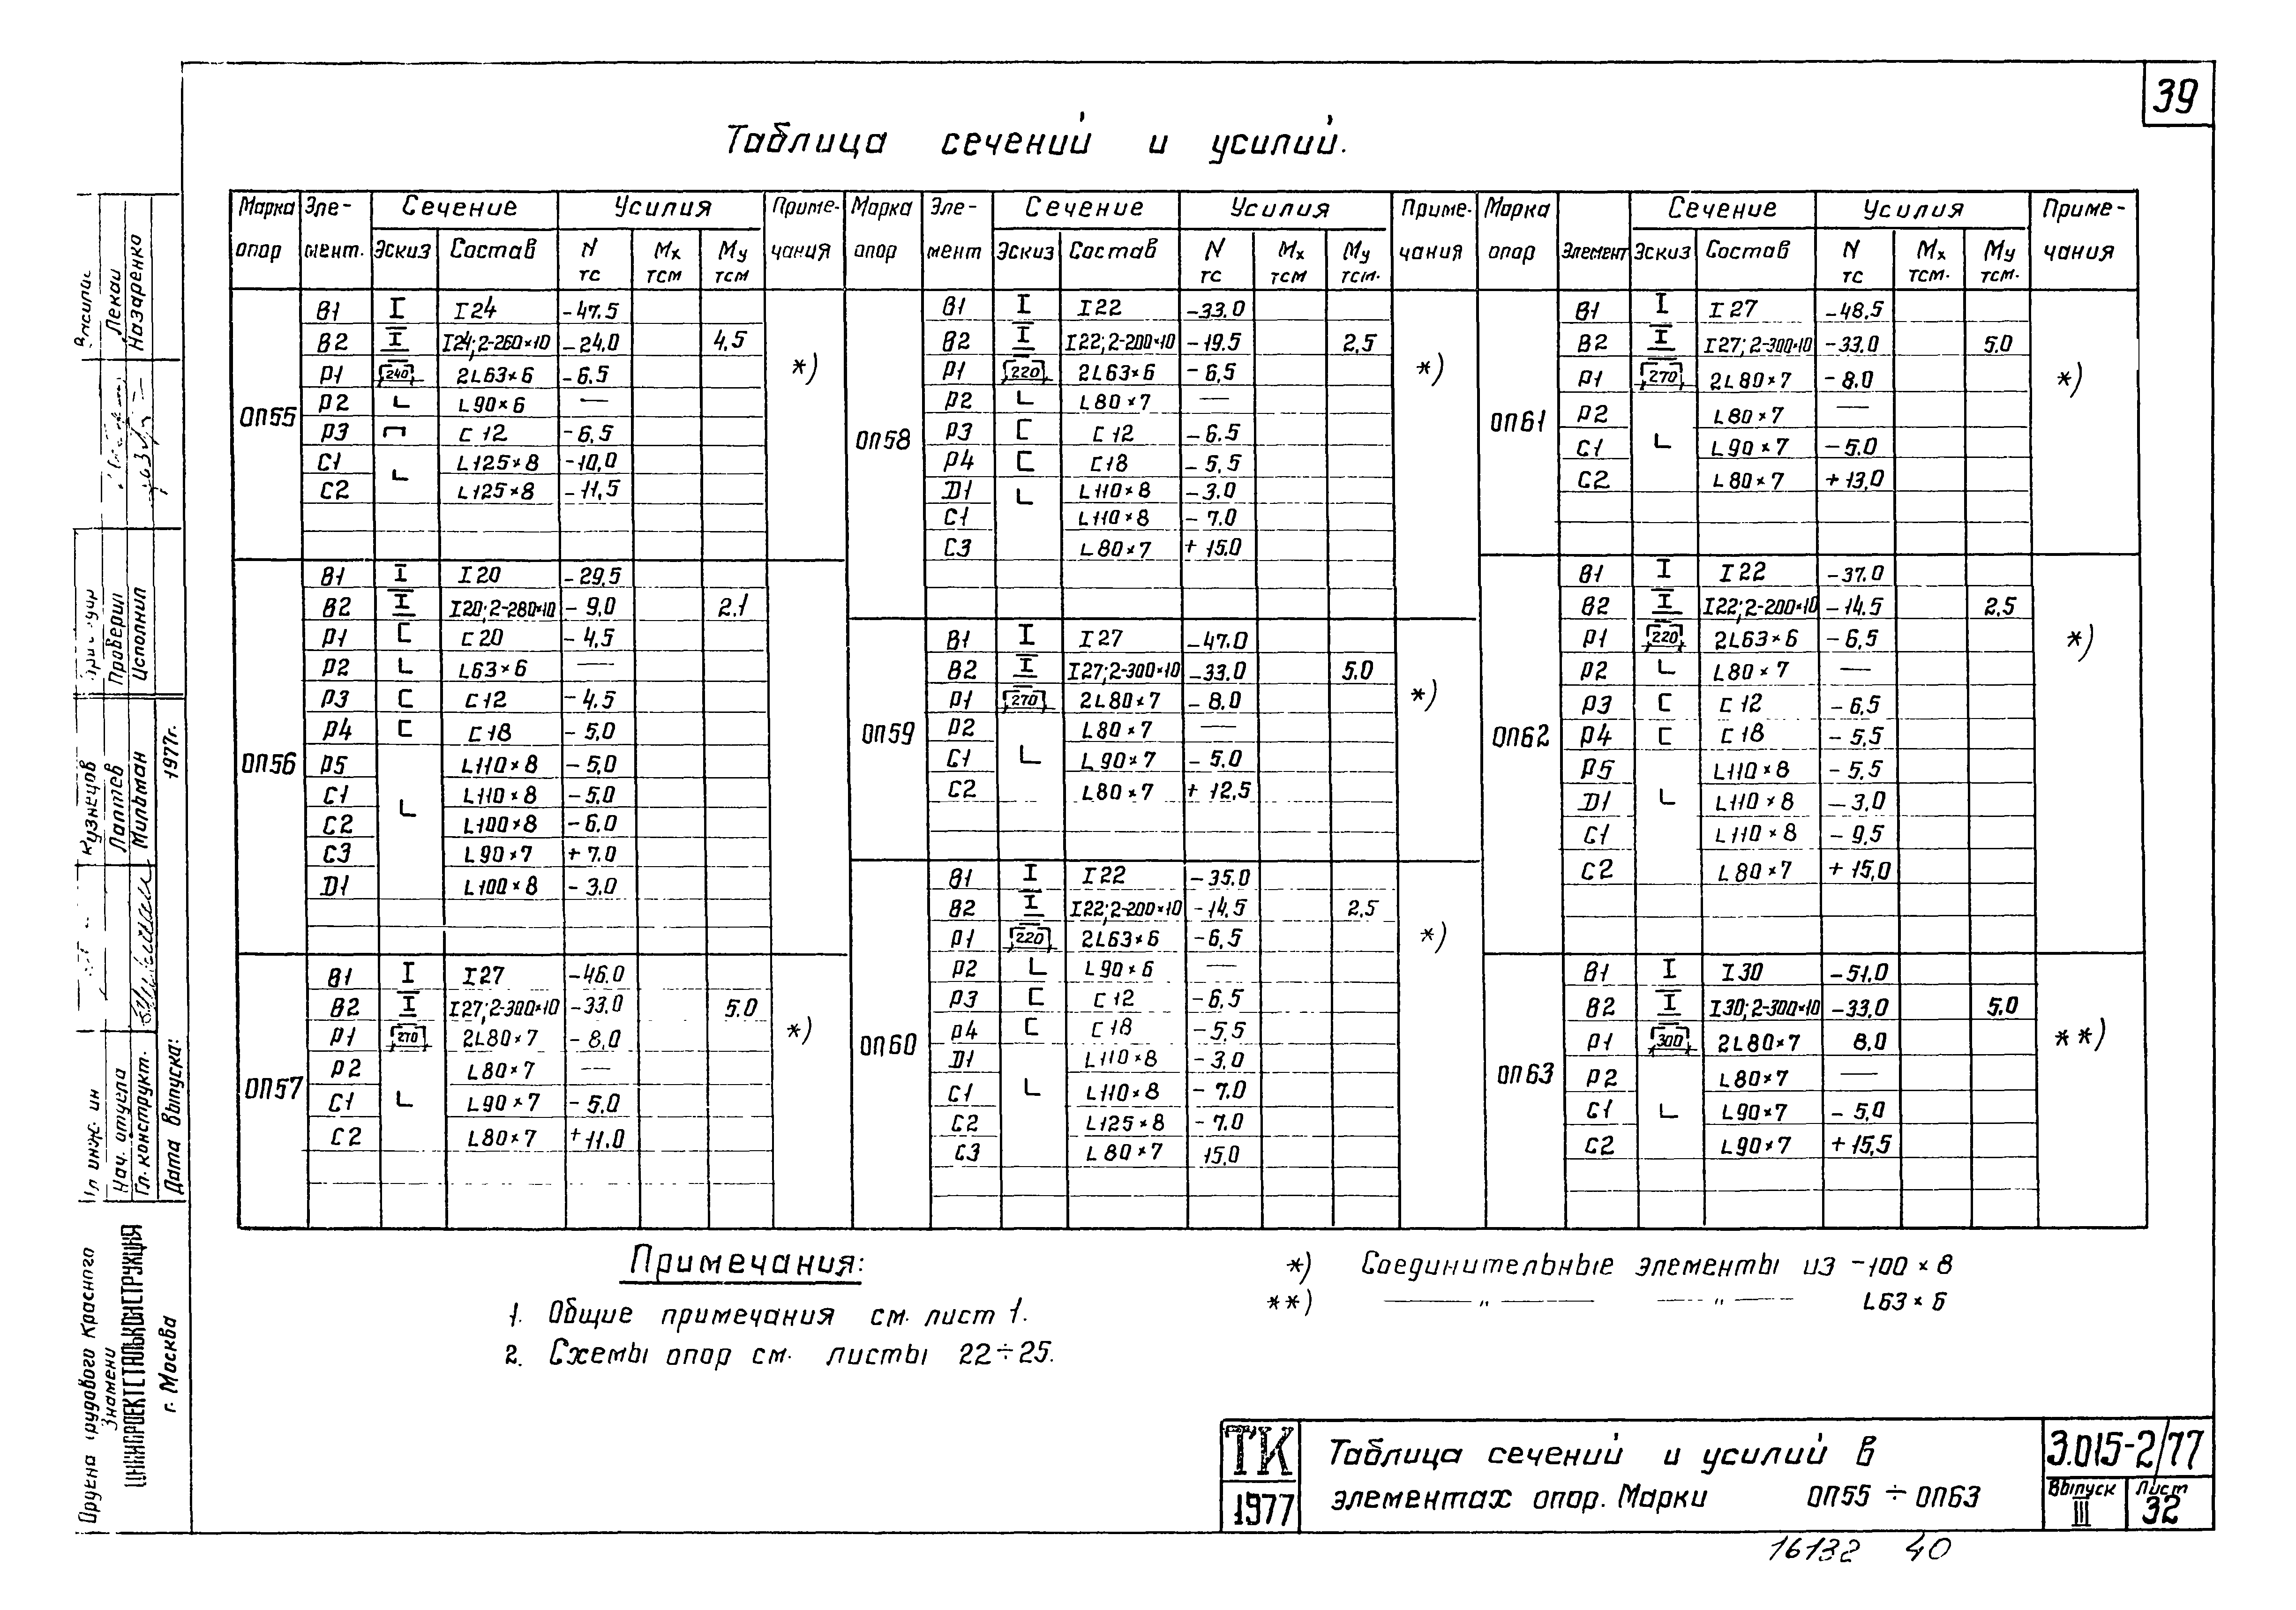 39
Таблица сечений и усилий.
Марка опор | Эле-мент. | Сечение | Усилия | Приме-чания
Эскиз | Состав | N тс | Mх тсм | Mу тсм
ОП55
В1 I I24 -47.5
В2 I I24; 2-260×10 -24.0 4,5 *)
Р1 240 2L63×6 -6.5
Р2 L90×6 —
Р3 С12 -6,5
С1 L125×8 -10,0
С2 L125×8 -11,5
ОП56
В1 I I20 -29,5
В2 I I20; 2-280×10 -9,0 2.1
Р1 С С20 -4,5
Р2 L63×6 —
Р3 С С12 -4.5
Р4 С С18 -5,0
Р5 L110×8 -5,0
С1 L110×8 -5.0
С2 L100×8 -6.0
С3 L90×7 +7.0
D1 L100×8 -3.0
ОП57
В1 I I27 -46.0
В2 I I27; 2-300×10 -33.0 5.0 *)
Р1 270 2L80×7 -8,0
Р2 L80×7 —
С1 L90×7 -5,0
С2 L80×7 +11.0
Марка опор | Эле-мент | Сечение | Усилия | Приме-чания
Эскиз | Состав | N тс | Mх тсм | Mу тсм.
ОП58
В1 I I22 -33.0
В2 I I22; 2-200×10 -19.5 2,5 *)
Р1 220 2L63×6 -6,5
Р2 L80×7 —
Р3 С С12 -6.5
Р4 С С18 -5,5
D1 L110×8 -3.0
С1 L110×8 -7.0
С3 L80×7 +15.0
ОП59
В1 I I27 -47.0
В2 I I27; 2-300×10 -33.0 5.0 *)
Р1 270 2L80×7 -8,0
Р2 L80×7 —
С1 L90×7 -5,0
С2 L80×7 +12,5
ОП60
В1 I I22 -35.0
В2 I I22; 2-200×10 -14,5 2,5 *)
Р1 220 2L63×6 -6,5
Р2 L90×6 —
Р3 С С12 -6,5
Р4 С С18 -5,5
D1 L110×8 -3,0
С1 L110×8 -7.0
С2 L125×8 -7.0
С3 L80×7 15,0
Марка опор | Элемент | Сечение | Усилия | Приме-чания
Эскиз | Состав | N тс | Mх тсм. | Mу тсм.
ОП61
В1 I I27 -48,5
В2 I I27; 2-300×10 -33.0 5.0 *)
Р1 270 2L80×7 -8.0
Р2 L80×7 —
С1 L90×7 -5.0
С2 L80×7 +13,0
ОП62
В1 I I22 -37.0
В2 I I22; 2-200×10 -14,5 2,5 *)
Р1 220 2L63×6 -6,5
Р2 L80×7 —
Р3 С С12 -6,5
Р4 С С18 -5,5
Р5 L110×8 -5,5
D1 L110×8 -3,0
С1 L110×8 -9,5
С2 L80×7 +15,0
ОП63
В1 I I30 -51,0
В2 I I30; 2-300×10 -33,0 5,0 **)
Р1 300 2L80×7 8,0
Р2 L80×7 —
С1 L90×7 -5,0
С2 L90×7 +15,5
Примечания:
1. Общие примечания см. лист 1.
2. Схемы опор см. листы 22÷25.
*) Соединительные элементы из -100×8
**) — " — — " — L63×6
ТК
1977
Таблица сечений и усилий в
элементах опор. Марки ОП55 ÷ ОП63
3.015-2/77
Выпуск III
Лист 32
16132 40
Лекаи
Назаренко
Проверил
Исполнил
Кузнецов
Лаптев
Мильман
1977г.
Гл инж. ин
Нач. отдела
Гл. конструкт.
Дата выпуска:
Ордена трудового Красного
Знамени
ЦНИИПРОЕКТСТАЛЬКОНСТРУКЦИЯ
г. Москва